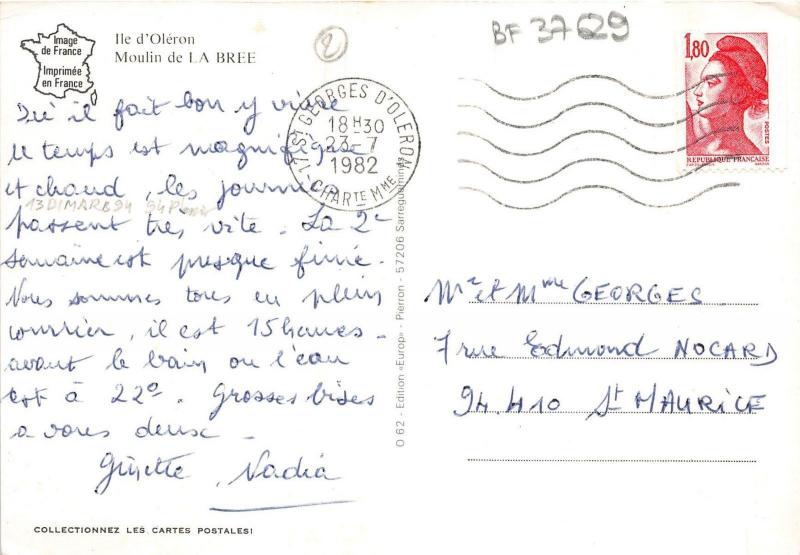 Image
de France
Imprimée
en France
Ile d'Oléron
Moulin de LA BREE
2
BF 3729
1,80
POSTES
REPUBLIQUE FRANÇAISE
17 ST GEORGES D'OLERON
18H30
23-7
1982
CHARTE MME
Ici il fait bon y vivre
le temps est magnifique
et chaud, les journées
13DIMAR894
passent très vite. La 2e
semaine est presque finie.
Nous sommes tous en plein
courrier, il est 15 heures.
avant le bain où l'eau
est à 22°. Grosses bises
a vous deux.
Ginette Nadia
COLLECTIONNEZ LES CARTES POSTALES!
O 62 - Edition «Europ» - Pierron - 57206 Sarreguemines
Mr et Mme GEORGES
7 rue Edmond NOCARD
94.410 St MAURICE